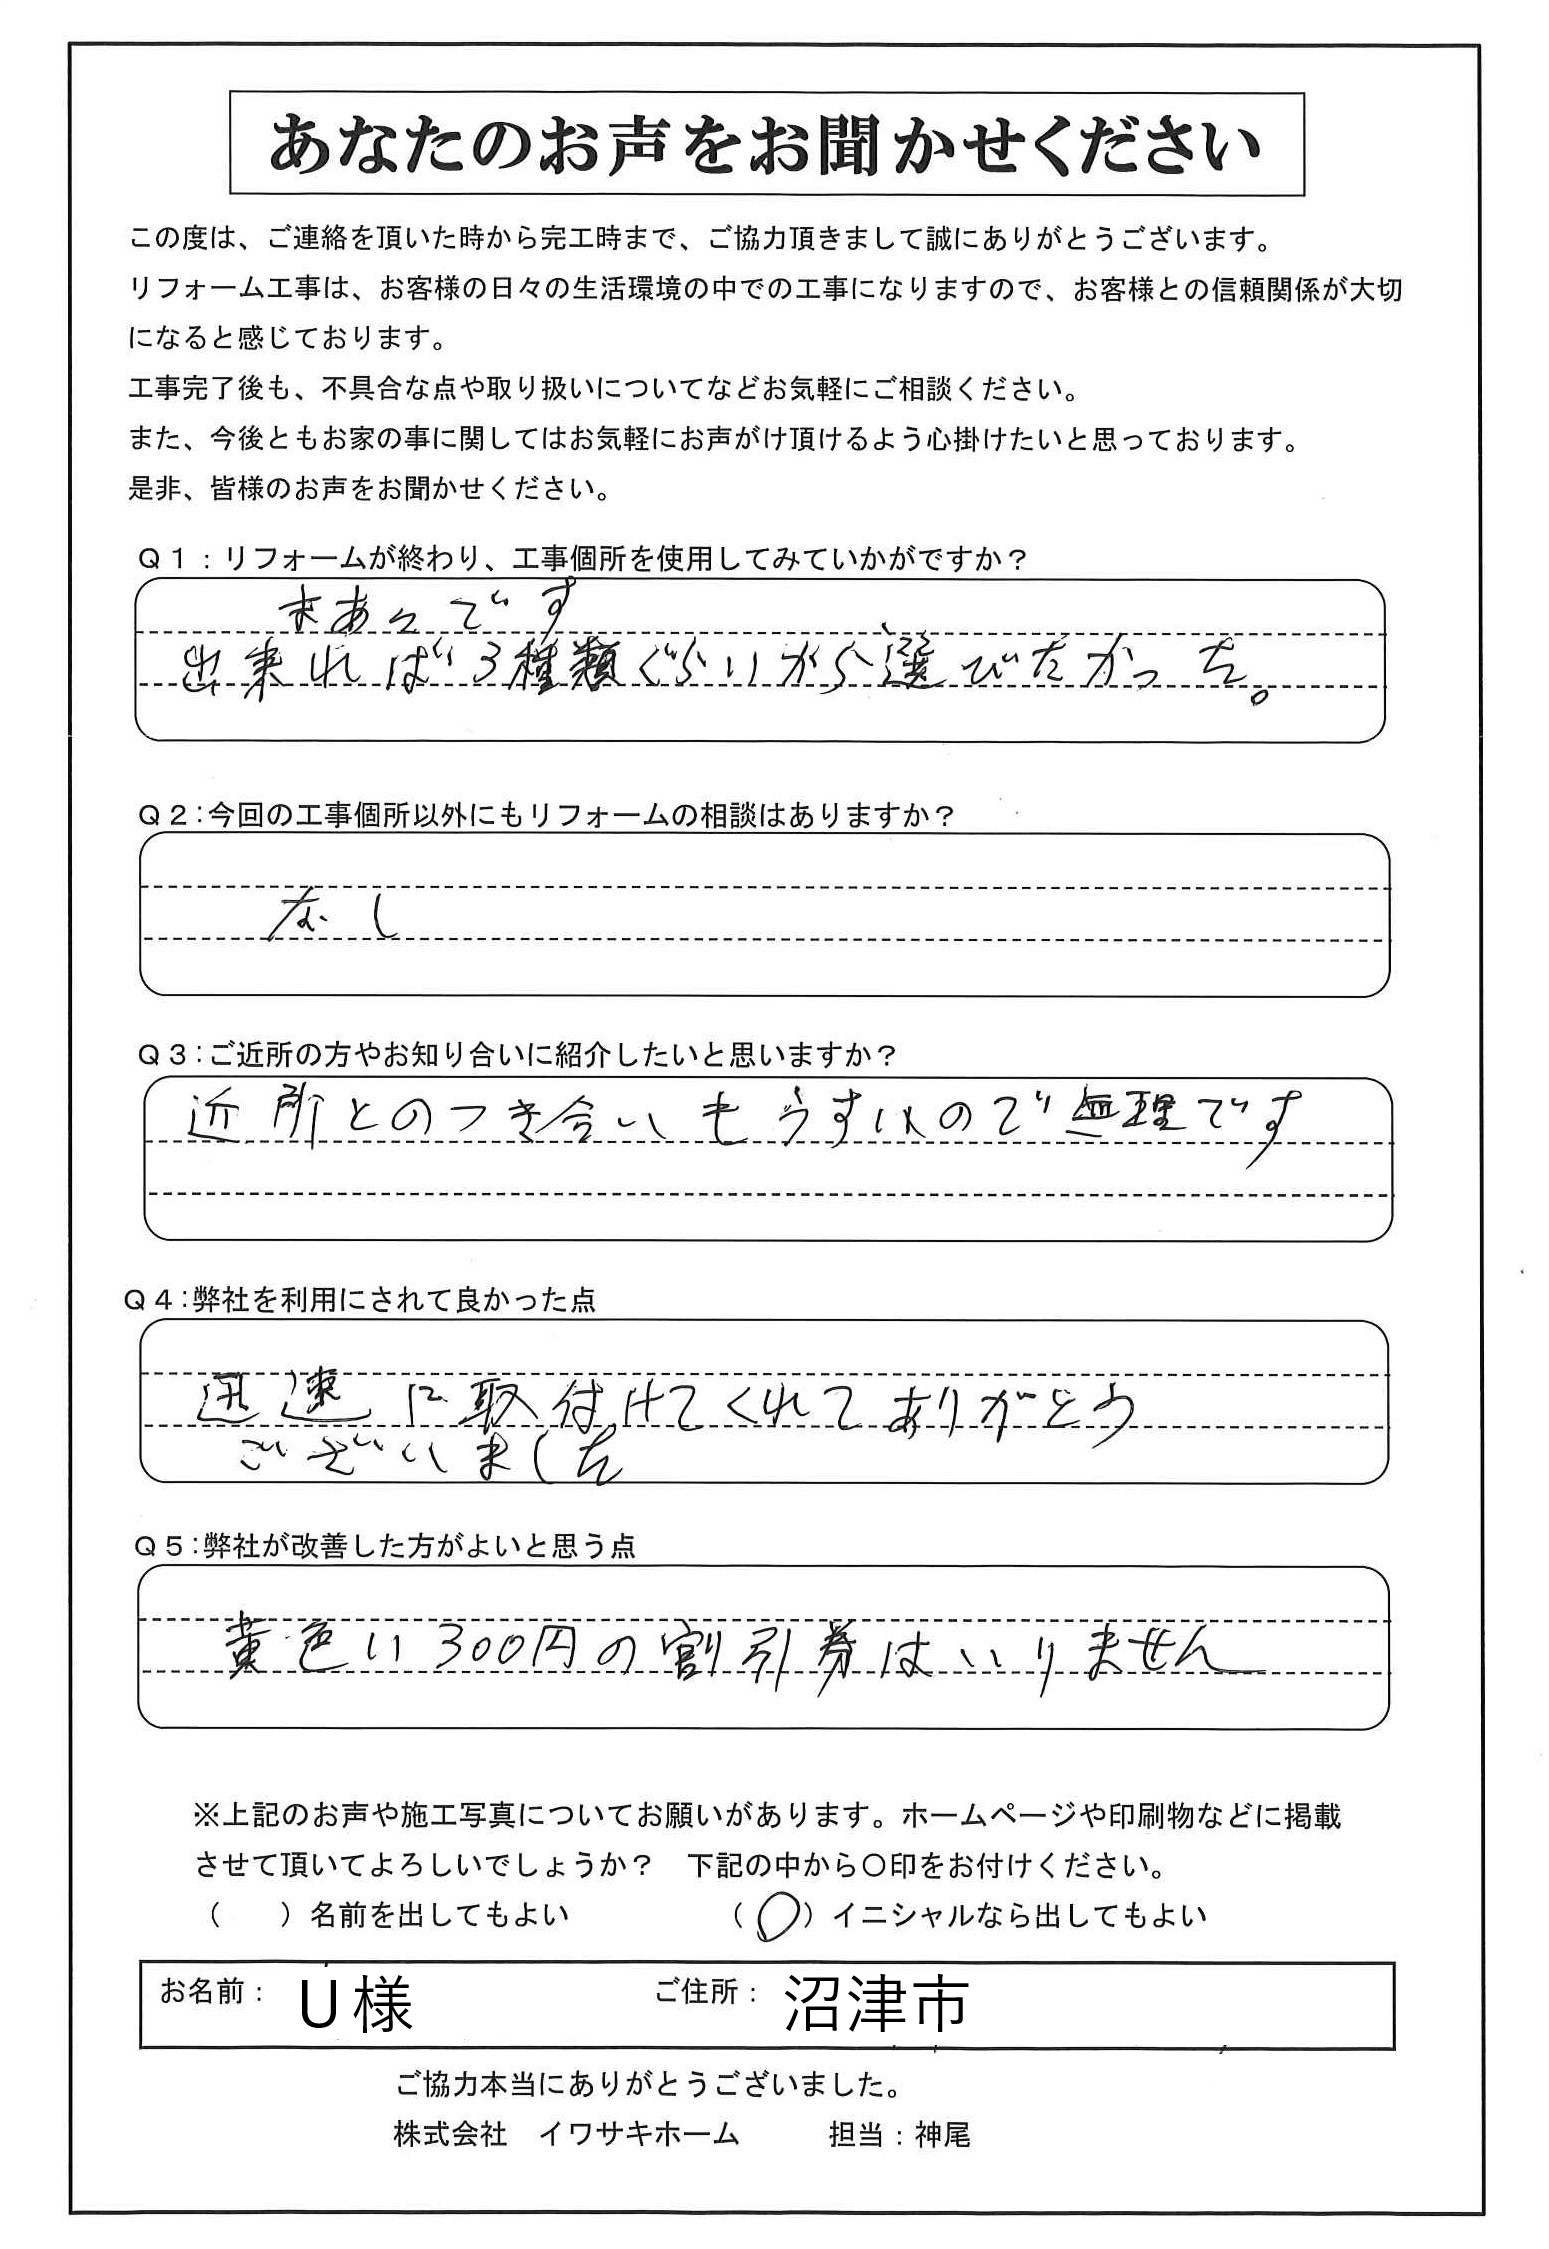 あなたのお声をお聞かせください
この度は、ご連絡を頂いた時から完工時まで、ご協力頂きまして誠にありがとうございます。
リフォーム工事は、お客様の日々の生活環境の中での工事になりますので、お客様との信頼関係が大切
になると感じております。
工事完了後も、不具合な点や取り扱いについてなどお気軽にご相談ください。
また、今後ともお家の事に関してはお気軽にお声がけ頂けるよう心掛けたいと思っております。
是非、皆様のお声をお聞かせください。
Q1：リフォームが終わり、工事個所を使用してみていかがですか？
まあ々です
出来れば3種類ぐらいから選びたかった。
Q2:今回の工事個所以外にもリフォームの相談はありますか？
なし
Q3:ご近所の方やお知り合いに紹介したいと思いますか？
近所とのつき合いもうすいので無理です
Q4:弊社を利用にされて良かった点
迅速に取付けてくれてありがとう
ございました
Q5:弊社が改善した方がよいと思う点
黄色い300円の割引券はいりません
※上記のお声や施工写真についてお願いがあります。ホームページや印刷物などに掲載
させて頂いてよろしいでしょうか？　下記の中から〇印をお付けください。
（　　）名前を出してもよい　　（〇）イニシャルなら出してもよい
お名前：U様　　ご住所：沼津市
ご協力本当にありがとうございました。
株式会社　イワサキホーム　　担当：神尾